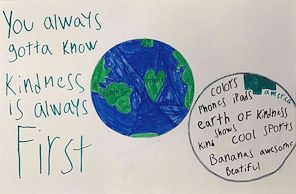 You always
gotta know
Kindness
is always
First
colors america
Phones iPads
earth OF Kindness
shows
Kind COOL Sports
Bananas awesome
Beatiful